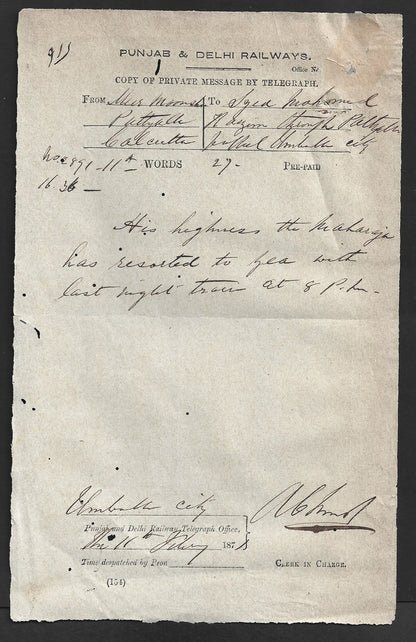 PUNJAB & DELHI RAILWAYS.
1
Office No
COPY OF PRIVATE MESSAGE BY TELEGRAPH.
FROM Meer Moonshi To Syed Mahomed
Puttyalla through Puttyalla
Calcutta Umballa City
11th WORDS 27- PRE-PAID
16.36 —
His highness the Maharaja
has resorted to Gea with
last night train at 8 P.m-
Umballa City
Punjab and Delhi Railway Telegraph Office.
The 11th 187
Time despatched by Peon
CLERK IN CHARGE.
(154)